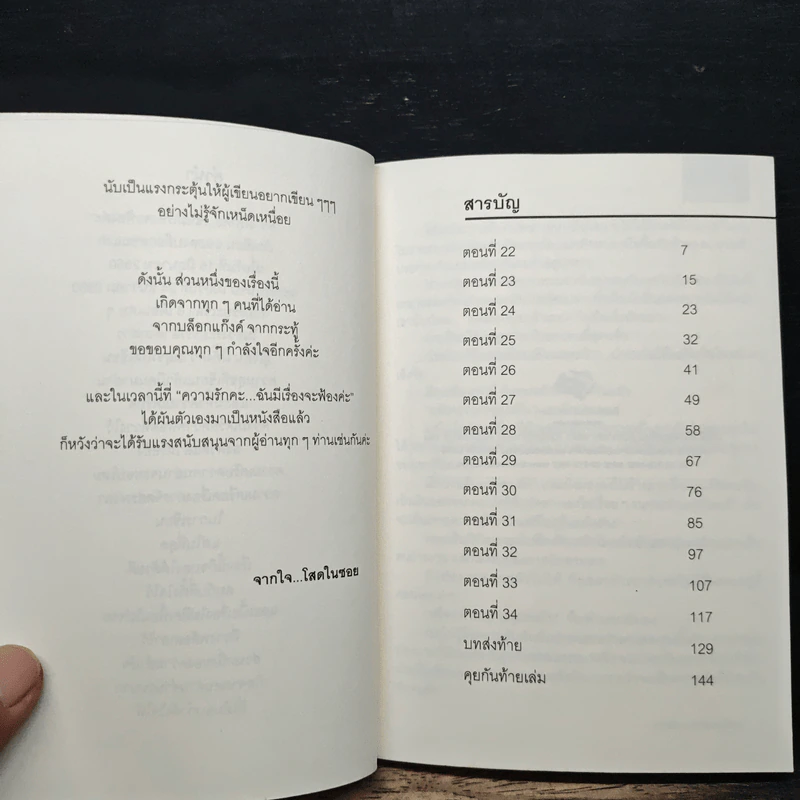 นับเป็นแรงกระตุ้นให้ผู้เขียนอยากเขียน ๆๆๆ
อย่างไม่รู้จักเหน็ดเหนื่อย
ดังนั้น ส่วนหนึ่งของเรื่องนี้
เกิดจากทุก ๆ คนที่ได้อ่าน
จากบล็อกแก๊งค์ จากกระทู้
ขอขอบคุณทุก ๆ กำลังใจอีกครั้งค่ะ
และในเวลานี้ที่ "ความรักคะ...ฉันมีเรื่องจะฟ้องค่ะ"
ได้ผันตัวเองมาเป็นหนังสือแล้ว
ก็หวังว่าจะได้รับแรงสนับสนุนจากผู้อ่านทุก ๆ ท่านเช่นกันค่ะ
จากใจ...โสดในซอย
สารบัญ
ตอนที่ 22 7
ตอนที่ 23 15
ตอนที่ 24 23
ตอนที่ 25 32
ตอนที่ 26 41
ตอนที่ 27 49
ตอนที่ 28 58
ตอนที่ 29 67
ตอนที่ 30 76
ตอนที่ 31 85
ตอนที่ 32 97
ตอนที่ 33 107
ตอนที่ 34 117
บทส่งท้าย 129
คุยกันท้ายเล่ม 144